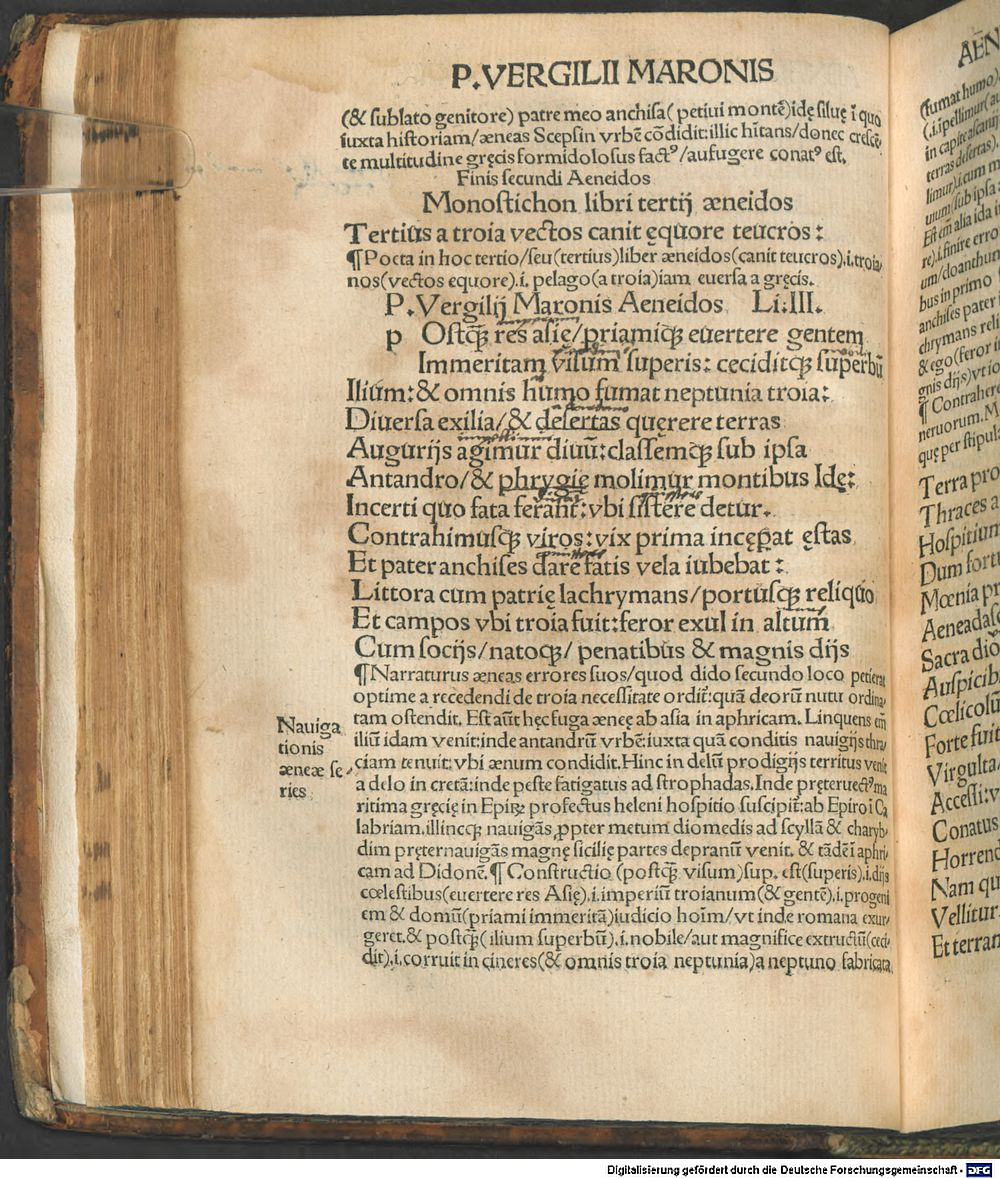 P.VERGILII MARONIS
(& sublato genitore) patre meo anchisa( petiui montē)idę siluę ī quo
iuxta historiam/æneas Scepsin vrbē cōdidit:illic hītans/donec crescē-
te multitudine gręcis formidolosus factꝰ/aufugere conatꝰ est.
Finis secundi Aeneidos
Monostichon libri tertij æneidos
Tertius a troia vectos canit ęquore teucros:
¶Poeta in hoc tertio/seu(tertius)liber æneidos(canit teucros).i.troia-
nos(vectos equore).i. pelago(a troia)iam euersa a gręcis.
P.Vergilij Maronis Aeneidos Li:III.
p Ostqꝫ res asię/priamiqꝫ euertere gentem
Immeritam visum superis: ceciditqꝫ superbū
Ilium:& omnis humo fumat neptunia troia:
Diuersa exilia/& desertas quęrere terras
Augurijs agimur diuū:classemqꝫ sub ipsa
Antandro/& phrygię molimur montibus Idę:
Incerti quo fata ferant:vbi sistere detur.
Contrahimusqꝫ viros:vix prima incęꝑat ęstas
Et pater anchises dare fatis vela iubebat:
Littora cum patrię lachrymans/portusqꝫ reliquo
Et campos vbi troia fuit:feror exul in altum
Cum socijs/natoqꝫ/ penatibus & magnis dijs
¶Narraturus æneas errores suos/quod dido secundo loco petierat
optime a recedendi de troia necessitate ordit᷑:quā deorū nutu ordina-
tam ostendit. Est aūt hęc fuga ænęę ab asia in aphricam. Linquens em̄
iliū idam venit:inde antandrū vrbē:iuxta quā conditis nauigijs thra-
ciam tenuit:vbi ænum condidit.Hinc in delū prodigijs territus venit
a delo in cretā:inde peste fatigatus ad strophadas.Inde pręteruectꝰ ma
ritima gręcię in Epirꝝ profectus heleni hospitio suscipit᷑:ab Epiro ī Ca
labriam.illincqꝫ nauigās ꝓpter metum diomedis ad scyllā & charyb-
dim pręternauigās magnę sicilię partes depranū venit. & tādē ī aphri-
cam ad Didonē.¶ Constructio (postqꝫ visum)sup. est(superis).i.dijs
cœlestibus(euertere res Asię).i.imperiū troianum(& gentē).i.progeni
em & domū(priami immeritā)iudicio hoīm/vt inde romana exur-
geret.& postqꝫ(ilium superbū).i.nobile/aut magnifice extructū(ceci-
dit).i.corruit in cineres(& omnis troia neptunia)a neptuno fabricata
Nauiga
tionis
æneæ se-
ries
AEN
(fumat humo)
(.i.īpellimur(au
in capite ascanij
terras desertas).
limur).i.cum m
uium/sub ipsa
Est em̄ alia ida i
re).i.finire erro
um/doanthun
bus in primo
anchises pater
chrymans reli
& ego(feror i
gnis dijs)vt io
¶ Contrahere
neruorum.M
quę per stipula
Terra pro
Thraces a
Hospitium
Dum fort
Mœnia pr
Aeneadasq
Sacra dio
Auspicib
Cœlicolū
Forte fuit
Virgulta/
Accessi:v
Conatus
Horrend
Nam qu
Vellitur
Et terram
Digitalisierung gefördert durch die Deutsche Forschungsgemeinschaft - DFG